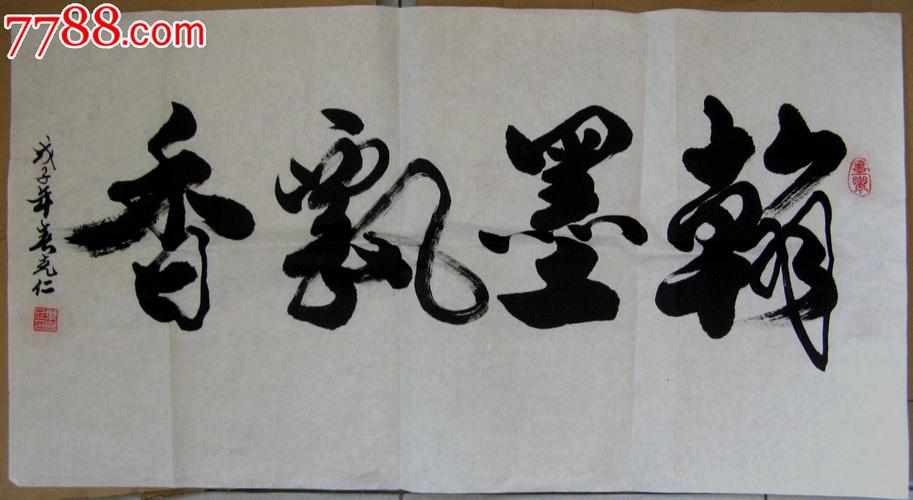 7788.com
翰墨飘香
戊子年春克仁